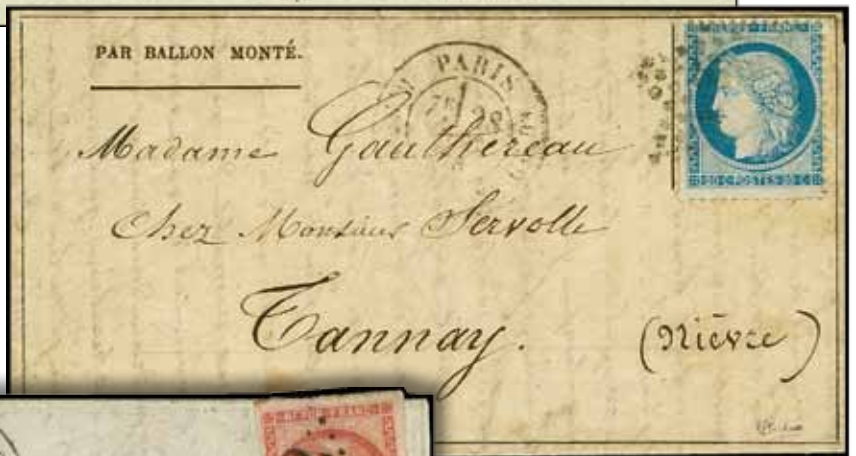 PAR BALLON MONTÉ.
PARIS
7E 28
Madame Gauthereau
Chez Monsieur Servolle
Tannay. (Nièvre)
20 C POSTES 20 C